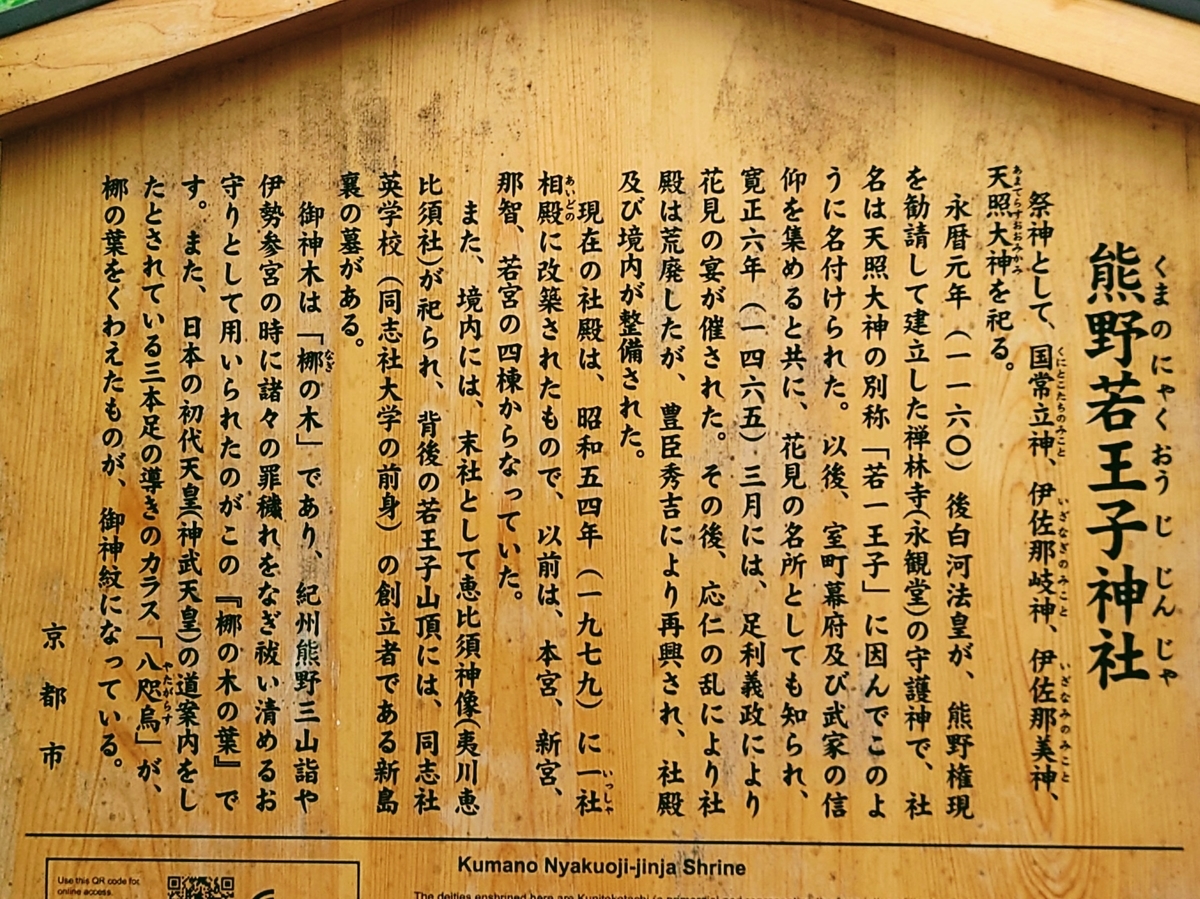 熊野若王子神社
くまのにゃくおうじじんじゃ
祭神として、国常立神、伊佐那岐神、伊佐那美神、
くにとこたちのみこと いざなぎのみこと いざなみのみこと
天照大神を祀る。
あまてらすおおみかみ
永暦元年（一一六〇）後白河法皇が、熊野権現
を勧請して建立した禅林寺(永観堂)の守護神で、社
名は天照大神の別称「若一王子」に因んでこのよ
うに名付けられた。以後、室町幕府及び武家の信
仰を集めると共に、花見の名所としても知られ、
寛正六年（一四六五）三月には、足利義政により
花見の宴が催された。その後、応仁の乱により社
殿は荒廃したが、豊臣秀吉により再興され、社殿
及び境内が整備された。
現在の社殿は、昭和五四年（一九七九）に一社
いっしゃ
相殿に改築されたもので、以前は、本宮、新宮、
あいどの
那智、若宮の四棟からなっていた。
また、境内には、末社として恵比須神像(夷川恵
比須社)が祀られ、背後の若王子山頂には、同志社
英学校（同志社大学の前身）の創立者である新島
襄の墓がある。
御神木は「梛の木」であり、紀州熊野三山詣や
なぎ
伊勢参宮の時に諸々の罪穢れをなぎ祓い清めるお
守りとして用いられたのがこの『梛の木の葉』で
す。また、日本の初代天皇(神武天皇)の道案内をし
たとされている三本足の導きのカラス「八咫烏」が、
やたがらす
梛の葉をくわえたものが、御神紋になっている。
京都市
Kumano Nyakuoji-jinja Shrine
Use this QR code for
online access.
The deities enshrined here are Kunitokotachi